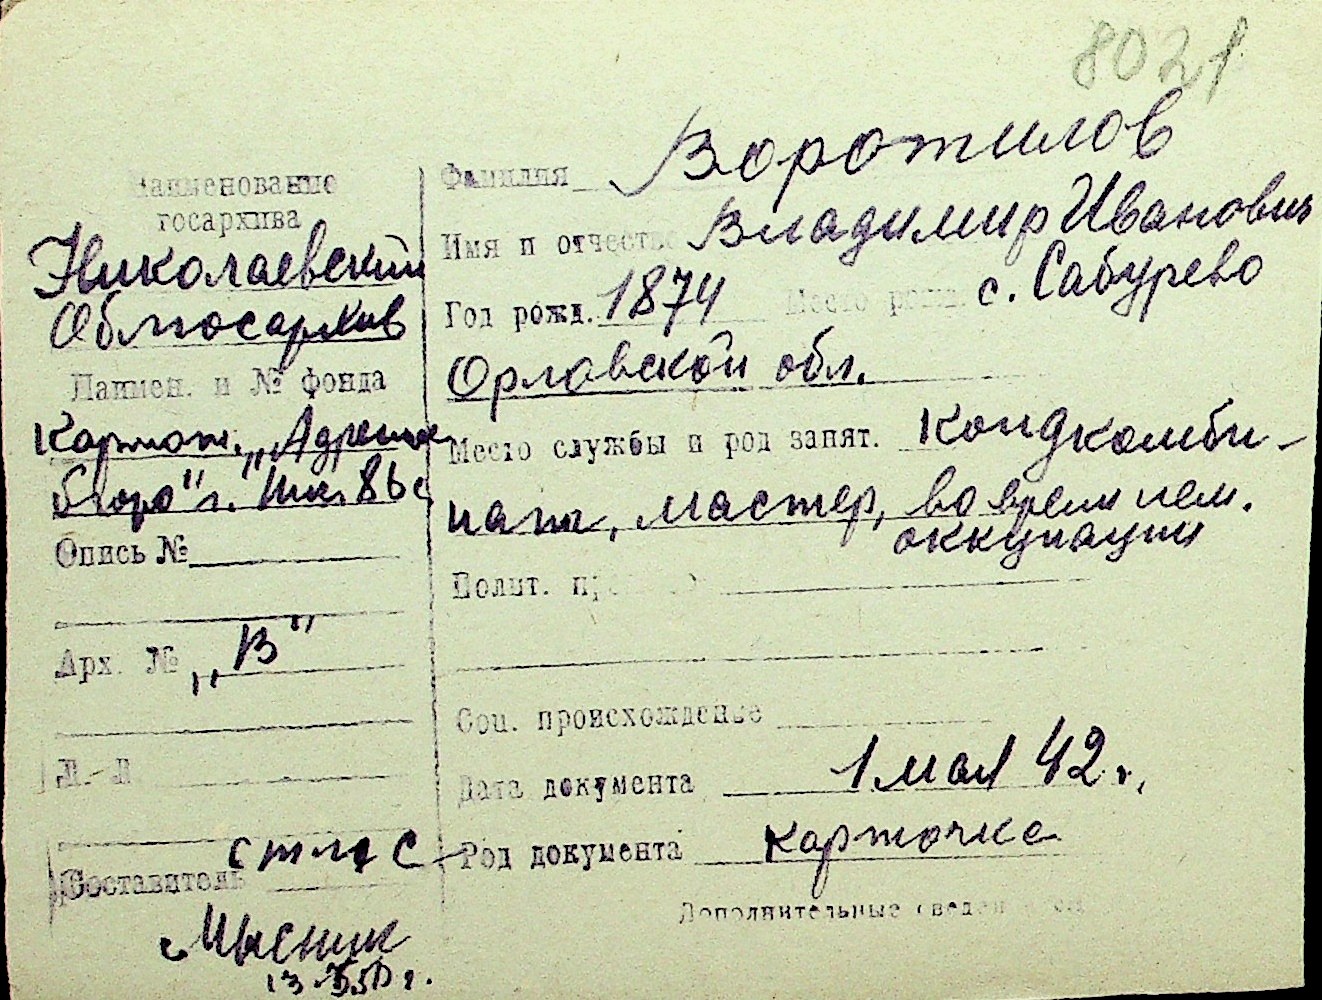 8021
Наименование
госархива
Николаевский
Облгосархив
Наимен. и № фонда
Картот. „Адресное
бюро" г. Ник.
Опись №
Арх. № „В"
Л. Л
Составитель
Мысник
Фамилия Воротилов
Имя и отчество Владимир Иванович
Год рожд. 1874 Место рожд. с. Сабурево
Орловской обл.
Место службы и род занят. Кондкомби-
нат, мастер, во время нем.
оккупации
Полит.
Соц. происхождение
Дата документа 1 мая 42 г.
Род документа карточка
Дополнительные сведения